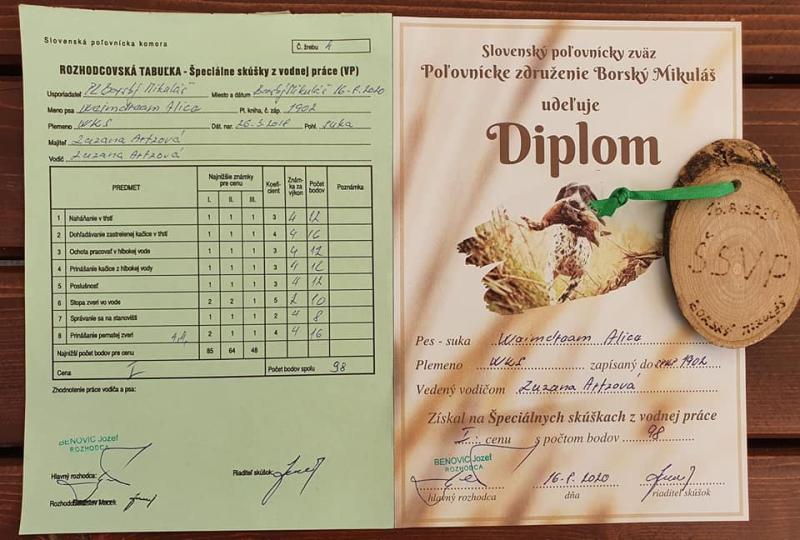 Slovenská poľovnícka komora
Č. žrebu 4
ROZHODCOVSKÁ TABUĽKA - Špeciálne skúšky z vodnej práce (VP)
Usporiadateľ PZ Borský Mikuláš Miesto a dátum Borský Mikuláš 16.8.2020
Meno psa Waimdraam Alica Pl. kniha, č. záp. 1902
Plemeno WKS Dát. nar. 26.3.2018 Pohl. suka
Majiteľ Zuzana Artzová
Vodič Zuzana Artzová
PREDMET Najnižšie známky pre cenu I. II. III. Koeficient Známka za výkon Počet bodov Poznámka
1 Naháňanie v tŕstí 1 1 1 3 4 12
2 Dohľadávanie zastrelenej kačice v tŕstí 1 1 1 4 4 16
3 Ochota pracovať v hlbokej vode 1 1 1 3 4 12
4 Prinášanie kačice z hlbokej vody 1 1 1 3 4 12
5 Poslušnosť 1 1 1 3 4 12
6 Stopa zveri vo vode 2 2 1 5 2 10
7 Správanie sa na stanovišti 1 1 1 2 4 8
8 Prinášanie pernatej zveri 2 1 1 4 4 16
Najnižší počet bodov pre cenu 85 64 48
Cena I Počet bodov spolu 98
Zhodnotenie práce vodiča a psa:
BENOVIC Jozef
ROZHODCA
Hlavný rozhodca:
Riaditeľ skúšok:
Slovenský poľovnícky zväz
Poľovnícke združenie Borský Mikuláš
udeľuje
Diplom
Pes - suka Waimdraam Alica
Plemeno WKS zapísaný do 1902
Vedený vodičom Zuzana Artzová
Získal na Špeciálnych skúškach z vodnej práce
I. cenu s počtom bodov 98
BENOVIC Jozef
ROZHODCA
16.8.2020
hlavný rozhodca dňa riaditeľ skúšok
16.8.2020
ŠSVP
BORSKÝ MIKULÁŠ